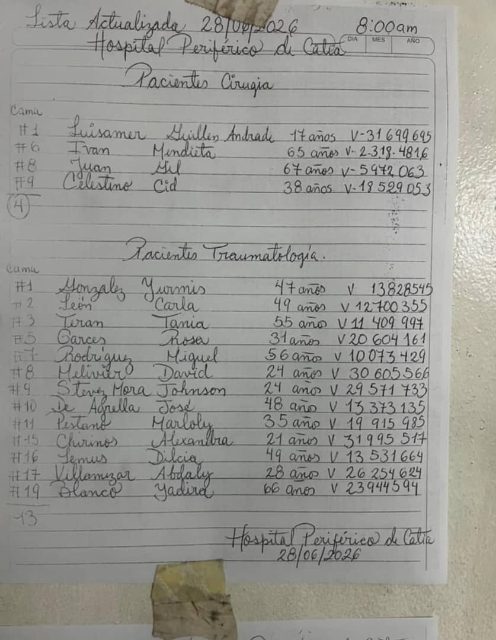 Lista Actualizada 28/06/2026 8:00am
DIA MES AÑO
Hospital Periférico de Catia
Pacientes Cirugia
Cama
#1 Luisamer Guillen Andrade 17 años V-31 699 695
#6 Ivan Mendieta 65 años V-2.318.4816
#8 Juan Gil 67 años V-5972 063
#9 Celestino Cid 38 años V-18 529 053
4
Pacientes Traumatología.
Cama
#1 Gonzalez Yurmis 47 años V 13828545
#2 León Carla 49 años V 12700355
#3 Teran Tania 55 años V 11 409 997
#5 Garces Rosa 31 años V 20 604 161
#7 Rodriguez Miguel 56 años V 10073429
#8 Melivier David 24 años V 30605566
#9 Stevez Mora Johnson 24 años V 29 571 733
#10 De Agrella José 48 año V 13 373 135
#11 Pestano Marloly 35 año V 19 915 985
#15 Chirinos Alexandra 21 años V 31995 517
#16 Lemus Dilcia 49 años V 13 531664
#17 Villamizar Abdaly 28 año V 26 254 624
#19 Blanco Yadira 66 años V 23944594
13
Hospital Periférico de Catia
28/06/2026